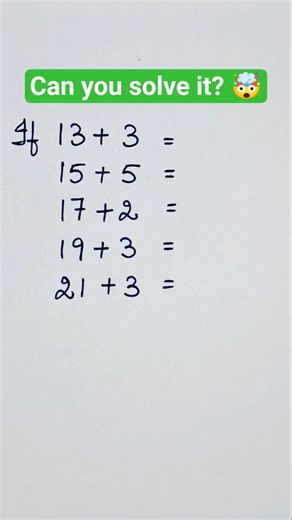 Can you solve it? 🤯
If 13 + 3 =
15 + 5 =
17 + 2 =
19 + 3 =
21 + 3 =